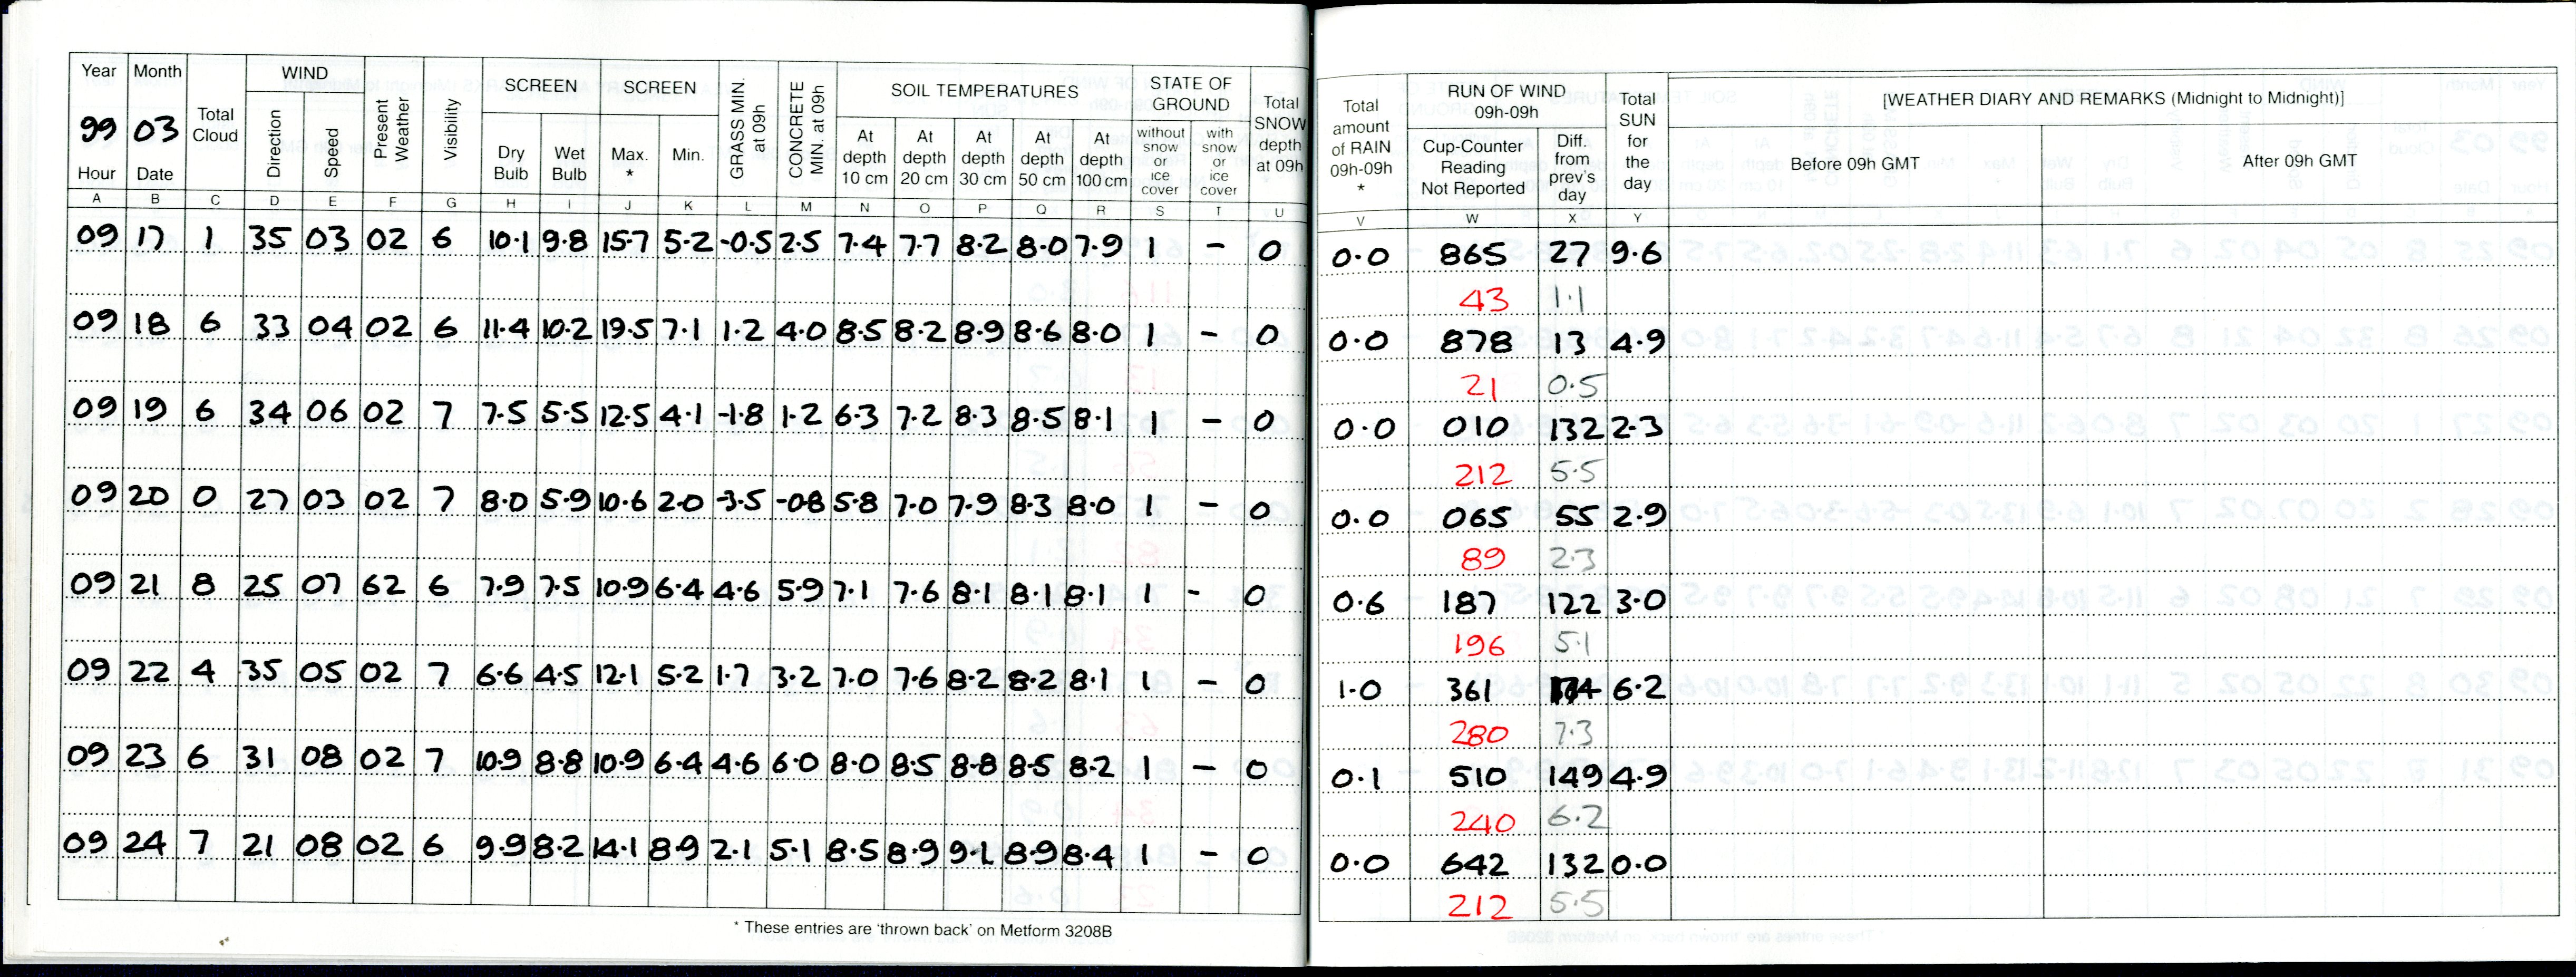 Year Month Total Cloud WIND Present Weather Visibility SCREEN SCREEN GRASS MIN. at 09h CONCRETE MIN. at 09h SOIL TEMPERATURES STATE OF GROUND Total SNOW depth at 09h Total amount of RAIN 09h-09h * RUN OF WIND 09h-09h Total SUN for the day [WEATHER DIARY AND REMARKS (Midnight to Midnight)]
99 03 Direction Speed Dry Bulb Wet Bulb Max. * Min. At depth 10 cm At depth 20 cm At depth 30 cm At depth 50 cm At depth 100 cm without snow or ice cover with snow or ice cover Cup-Counter Reading Not Reported Diff. from prev's day Before 09h GMT After 09h GMT
Hour Date
A B C D E F G H I J K L M N O P Q R S T U V W X Y
09 17 1 35 03 02 6 10.1 9.8 15.7 5.2 -0.5 2.5 7.4 7.7 8.2 8.0 7.9 1 - 0 0.0 865 27 9.6
43 1.1
09 18 6 33 04 02 6 11.4 10.2 19.5 7.1 1.2 4.0 8.5 8.2 8.9 8.6 8.0 1 - 0 0.0 878 13 4.9
21 0.5
09 19 6 34 06 02 7 7.5 5.5 12.5 4.1 -1.8 1.2 6.3 7.2 8.3 8.5 8.1 1 - 0 0.0 010 132 2.3
212 5.5
09 20 0 27 03 02 7 8.0 5.9 10.6 2.0 -3.5 -08 5.8 7.0 7.9 8.3 8.0 1 - 0 0.0 065 55 2.9
89 2.3
09 21 8 25 07 62 6 7.9 7.5 10.9 6.4 4.6 5.9 7.1 7.6 8.1 8.1 8.1 1 - 0 0.6 187 122 3.0
196 5.1
09 22 4 35 05 02 7 6.6 4.5 12.1 5.2 1.7 3.2 7.0 7.6 8.2 8.2 8.1 1 - 0 1.0 361 174 6.2
280 7.3
09 23 6 31 08 02 7 10.9 8.8 10.9 6.4 4.6 6.0 8.0 8.5 8.8 8.5 8.2 1 - 0 0.1 510 149 4.9
240 6.2
09 24 7 21 08 02 6 9.9 8.2 14.1 8.9 2.1 5.1 8.5 8.9 9.1 8.9 8.4 1 - 0 0.0 642 132 0.0
212 5.5
* These entries are 'thrown back' on Metform 3208B